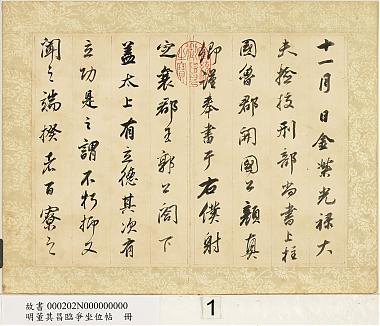 十一月日金紫光祿大
夫撿挍刑部尚書上柱
國魯郡開國公顏真
卿謹奉書于右僕射
定襄郡王郭公閤下
蓋太上有立德其次有
立功是之謂不朽抑又
聞之端揆者百寮之
故書 000202N000000000
明董其昌臨爭坐位帖 冊
1